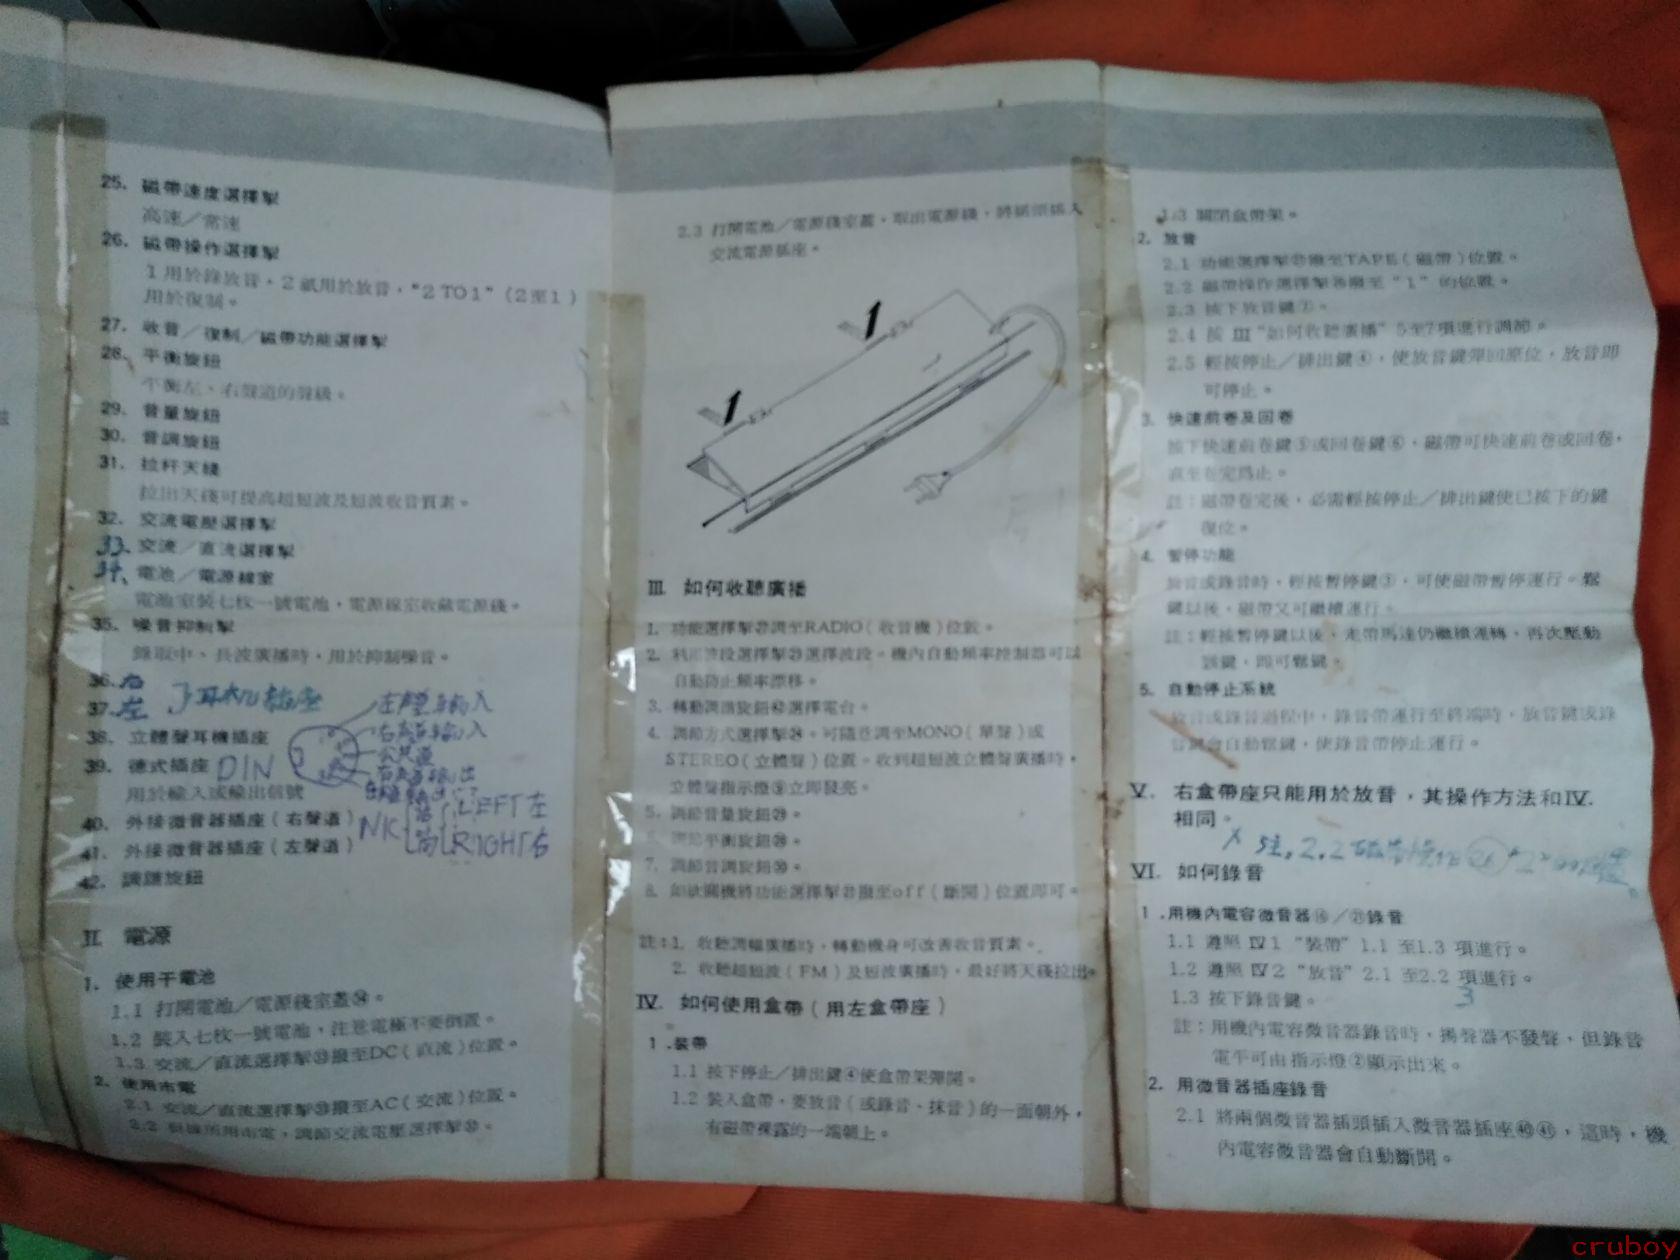 25. 磁帶速度選擇掣
高速／常速
26. 磁帶操作選擇掣
1 用於錄放音，2 祇用於放音，"2 TO 1"（2至1）
用於復制。
27. 收音／復制／磁帶功能選擇掣
28. 平衡旋鈕
平衡左、右聲道的聲級。
29. 音量旋鈕
30. 音調旋鈕
31. 拉杆天綫
拉出天綫可提高超短波及短波收音質素。
32. 交流電壓選擇掣
33. 交流／直流選擇掣
34、電池／電源綫室
電池室裝七枚一號電池，電源綫室收藏電源綫。
35. 噪音抑制掣
錄取中、長波廣播時，用於抑制噪音。
36. 右
37. 左 耳机插座
38. 立體聲耳機插座
39. 德式插座 DIN
用於輸入或輸出信號
40. 外接微音器插座（右聲道）
41. 外接微音器插座（左聲道）
42. 調諧旋鈕
左聲輸入
右聲輸入
公共通
右聲輸出
LEFT左
RIGHT右
II 電源
1. 使用干電池
1.1 打開電池／電源綫室蓋㉞。
1.2 裝入七枚一號電池，注意電極不要倒置。
1.3 交流／直流選擇掣㉝撥至DC（直流）位置。
2. 使用市電
2.1 交流／直流選擇掣㉝撥至AC（交流）位置。
2.2 根據所用市電，調節交流電壓選擇掣㉜。
2.3 打開電池／電源綫室蓋，取出電源綫，將插頭插入
交流電源插座。
1
1
III. 如何收聽廣播
1. 功能選擇掣㉗調至RADIO（收音機）位置。
2. 利用波段選擇掣㉓選擇波段。機內自動頻率控制器可以
自動防止頻率漂移。
3. 轉動調諧旋鈕㊷選擇電台。
4. 調節方式選擇掣㉔。可隨意調至MONO（單聲）或
STEREO（立體聲）位置。收到超短波立體聲廣播時，
立體聲指示燈⑨立即發亮。
5. 調節音量旋鈕㉙。
6. 調節平衡旋鈕㉘。
7. 調節音調旋鈕㉚。
8. 如欲關機將功能選擇掣㉗撥至off（斷開）位置即可。
註：1. 收聽調幅廣播時，轉動機身可改善收音質素。
2. 收聽超短波（FM）及短波廣播時，最好將天綫拉出。
IV. 如何使用盒帶（用左盒帶座）
1 .裝帶
1.1 按下停止／排出鍵④使盒帶架彈開。
1.2 裝入盒帶，要放音（或錄音、抹音）的一面朝外，
有磁帶裸露的一端朝上。
1.3 關閉盒帶架。
2. 放音
2.1 功能選擇掣㉗撥至TAPE（磁帶）位置。
2.2 磁帶操作選擇掣㉖撥至"1"的位置。
2.3 按下放音鍵⑦。
2.4 按 III "如何收聽廣播" 5至7項進行調節。
2.5 輕按停止／排出鍵④，使放音鍵彈回原位，放音即
可停止。
3. 快速前卷及回卷
按下快速前卷鍵⑤或回卷鍵⑥，磁帶可快速前卷或回卷，
直至卷完爲止。
註：磁帶卷完後，必需輕按停止／排出鍵使已按下的鍵
復位。
4. 暫停功能
放音或錄音時，輕按暫停鍵③，可使磁帶暫停運行。鬆
鍵以後，磁帶又可繼續運行。
註：輕按暫停鍵以後，走帶馬達仍繼續運轉，再次壓動
該鍵，即可鬆鍵。
5. 自動停止系統
放音或錄音過程中，錄音帶運行至終端時，放音鍵或錄
音鍵會自動鬆鍵，使錄音帶停止運行。
V. 右盒帶座只能用於放音，其操作方法和IV.
相同。
X 注. 2.2
VI. 如何錄音
1 .用機內電容微音器⑯／㉑錄音
1.1 遵照 IV 1 "裝帶" 1.1 至1.3 項進行。
1.2 遵照 IV 2 "放音" 2.1 至2.2 項進行。
3
1.3 按下錄音鍵。
註：用機內電容微音器錄音時，揚聲器不發聲，但錄音
電平可由指示燈②顯示出來。
2. 用微音器插座錄音
2.1 將兩個微音器插頭插入微音器插座㊵㊶，這時，機
內電容微音器會自動斷開。
cruboy